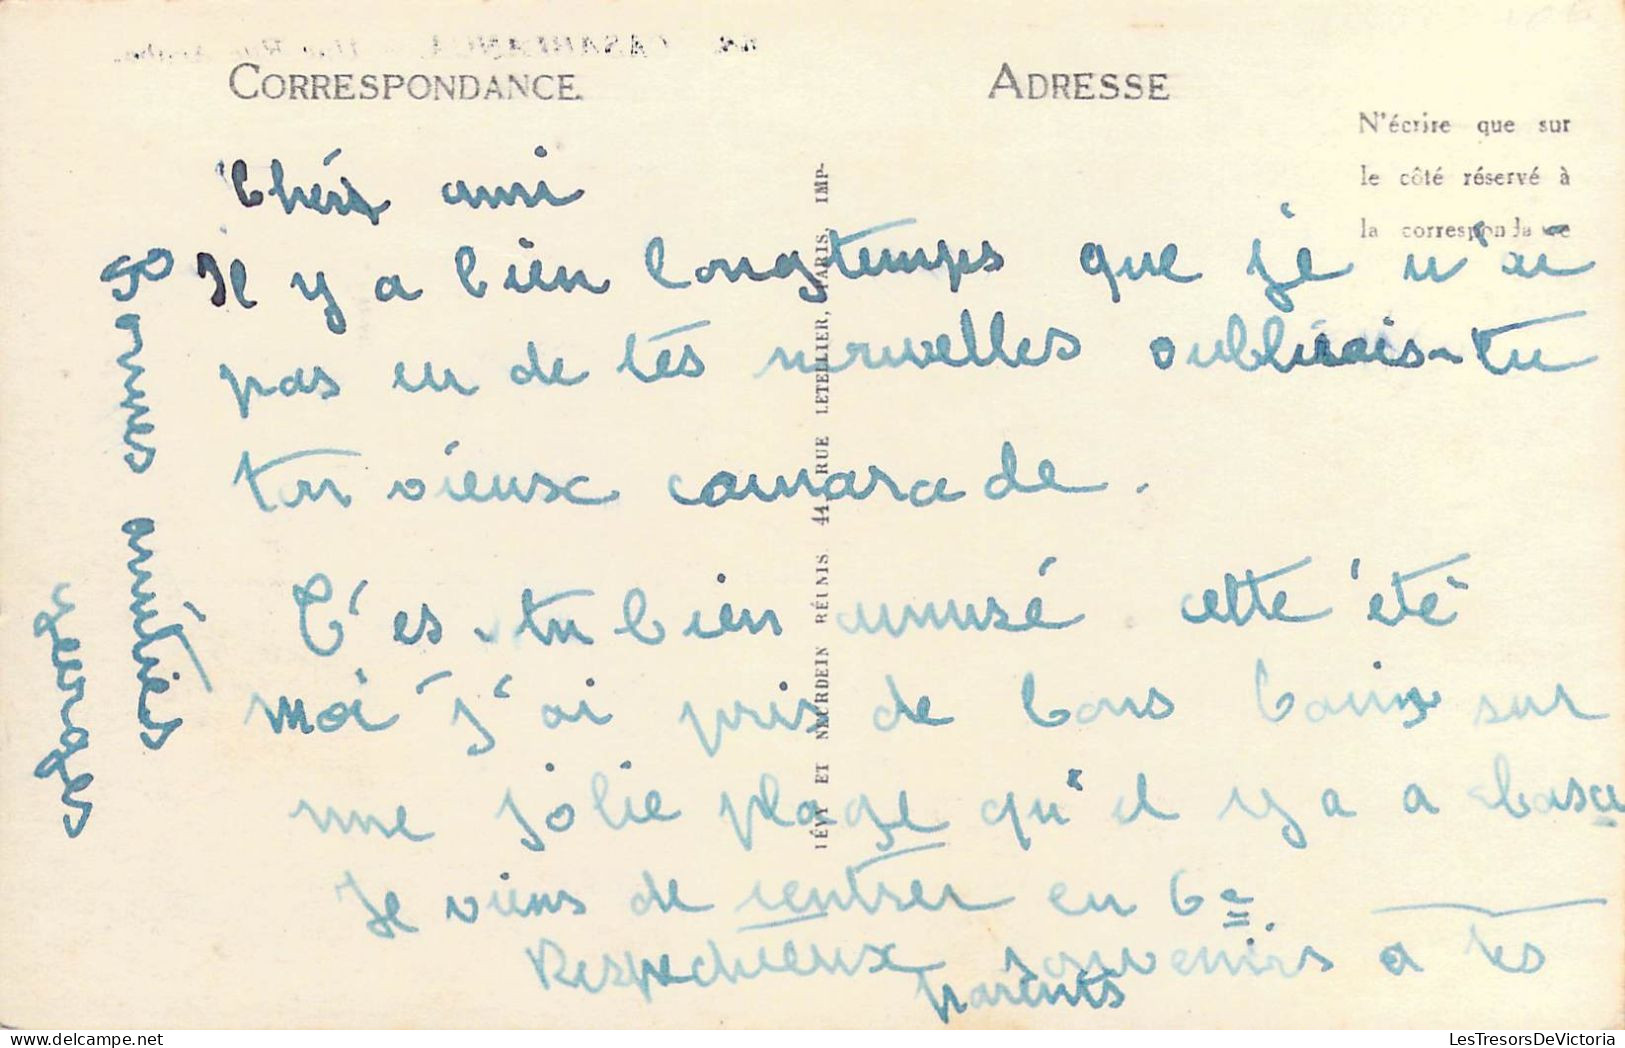 CORRESPONDANCE
ADRESSE
N'écrire que sur
le côté réservé à
la correspondance
LÉVY ET NEURDEIN RÉUNIS, 44, RUE LETELLIER, PARIS, IMP-
Chéri ami
Il y a bien longtemps que je n'ai
pas eu de tes nouvelles oublirais-tu
ton vieux camarade.
T'es-tu bien amusé cette été
moi j'ai pris de bons bains sur
une jolie plage qu'il y a a Casa
Je viens de rentrer en 6e
Respectueux souvenirs a tes
parents
Bonnes amitiés
georges
LesTresorsDeVictoria